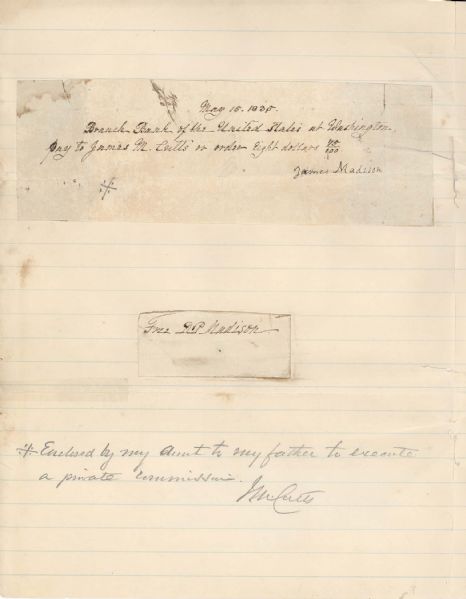 May 15. 1835.
Branch Bank of the United States at Washington.
Pay to James M. Cutts or order Eight dollars no/100
James Madison
*
Free D.P. Madison
* Enclosed by my Aunt to my father to execute
a private commission.
J M Cutts